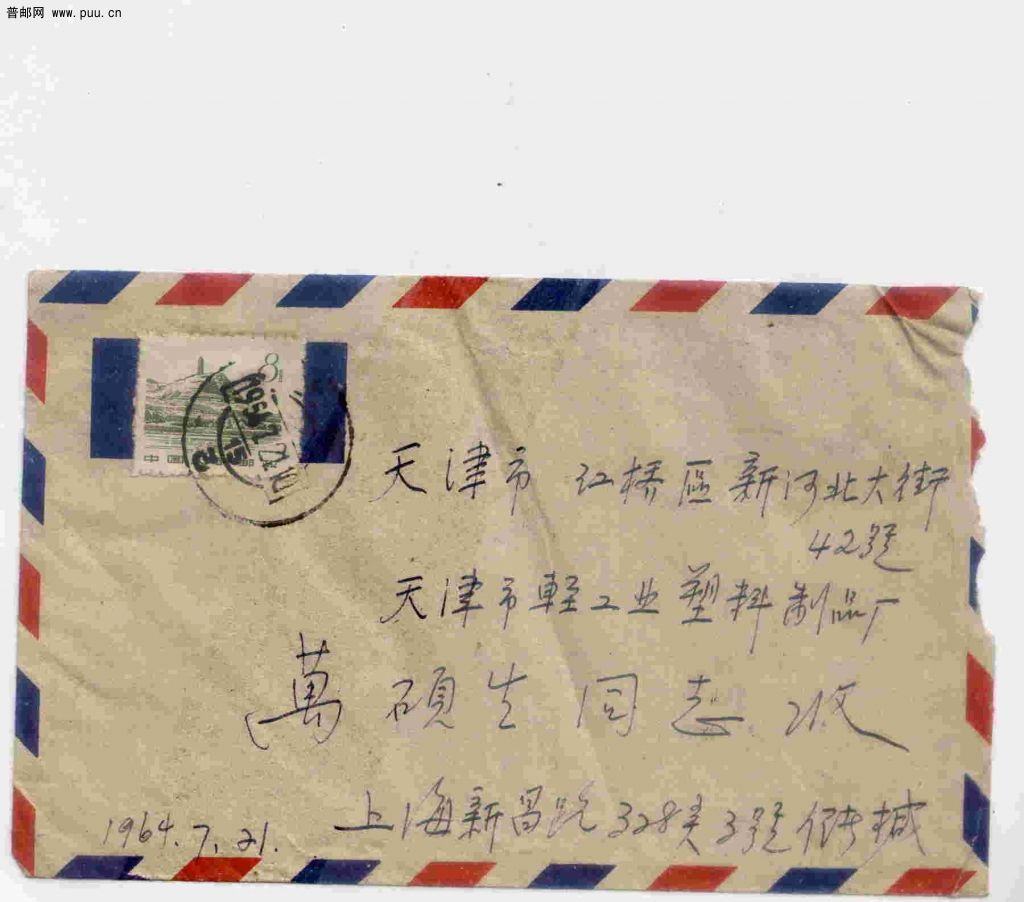 普邮网 www.puu.cn
8
中
天津市 红桥區新河北大街
42號
天津市軽工业塑料制品厂
萬碩生同志收
上海新昌路328弄3號
1964.7.21.